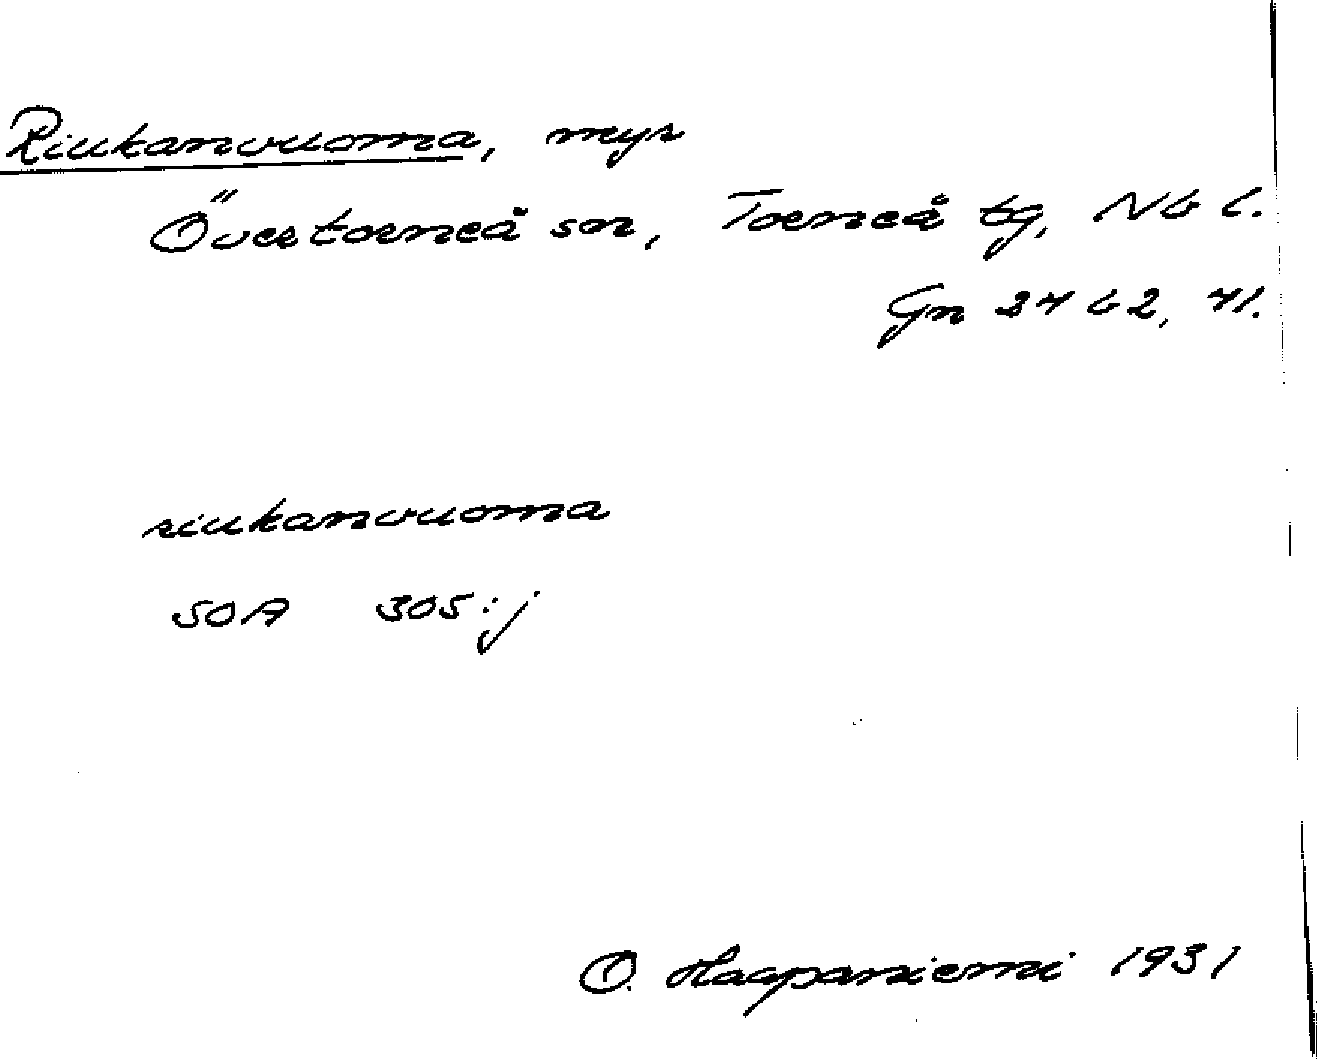 Riukanvuoma, myr
Övertorneå sn, Torneå tg, Nb l.
Gn 24 b 2, 41.
riukanvuoma
SOA 305:j
O. Haapaniemi 1931